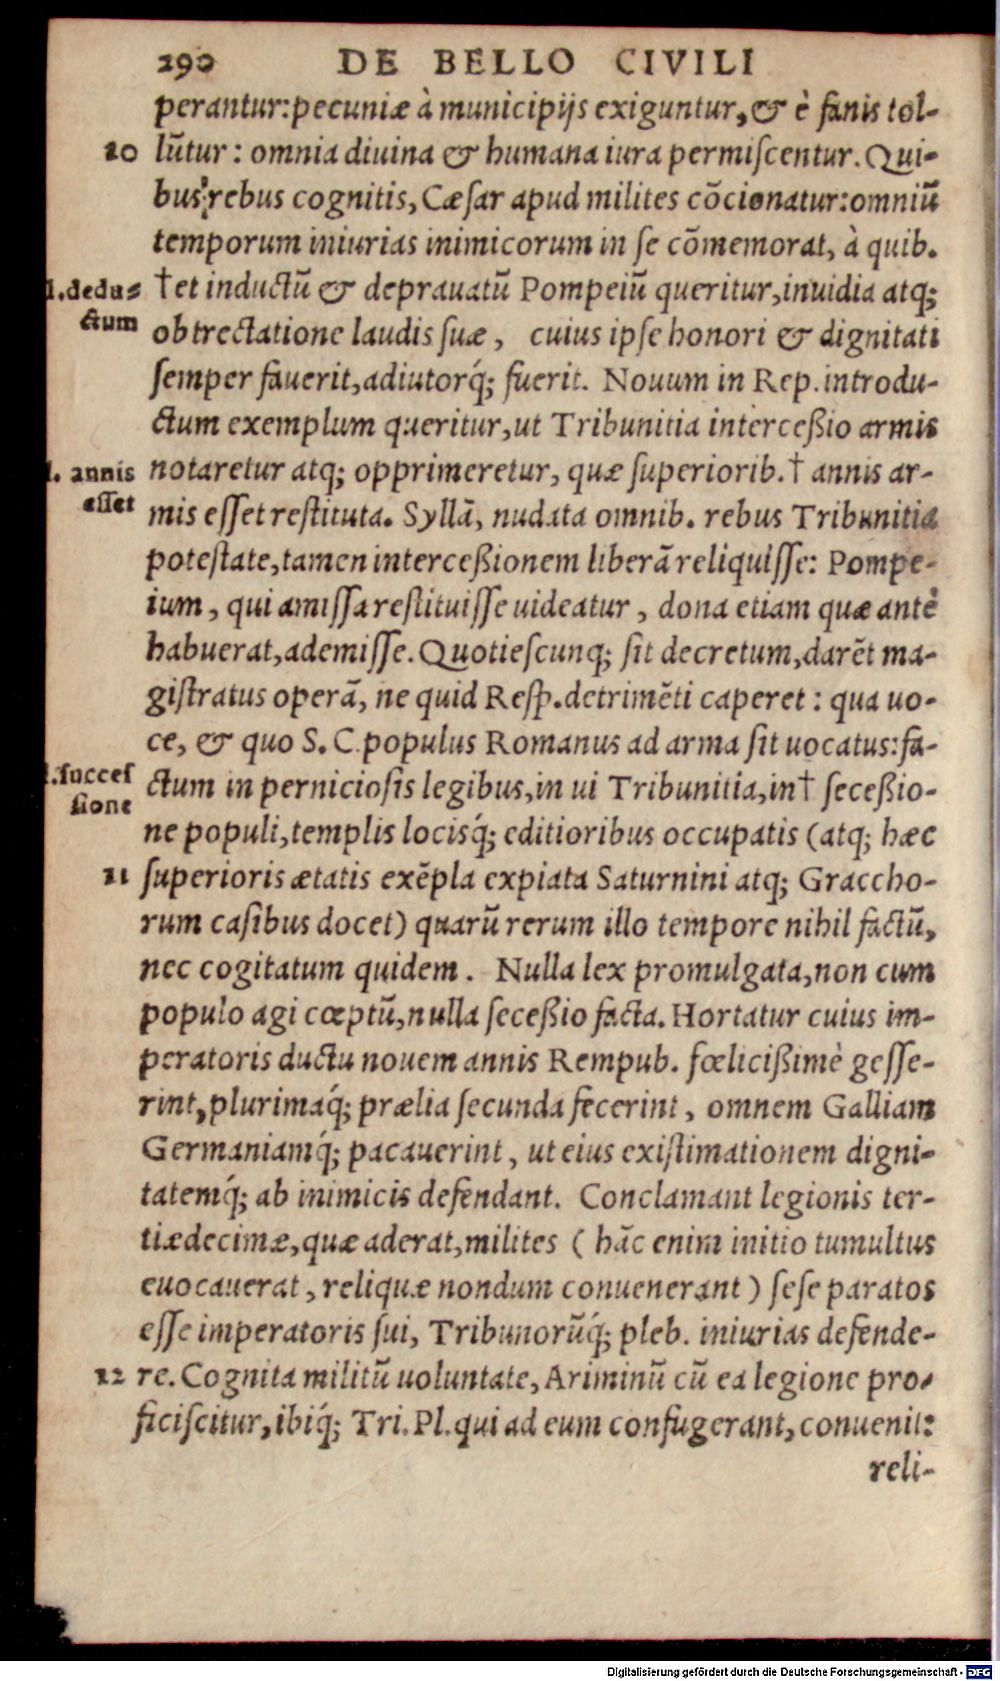 290 DE BELLO CIVILI
perantur:pecuniæ à municipijs exiguntur,& è fanis tol-
10 lūtur : omnia diuina & humana iura permiſcentur. Qui-
bus rebus cognitis, Cæſar apud milites cōcionatur:omniū
temporum iniurias inimicorum in ſe cōmemorat, à quib.
l.dedu= †et inductū & deprauatū Pompeiū queritur,inuidia atq;
ctum obtrectatione laudis ſuæ , cuius ipſe honori & dignitati
ſemper fauerit,adiutorq́; fuerit. Nouum in Rep.introdu-
ctum exemplum queritur,ut Tribunitia interceßio armis
l. annis notaretur atq; opprimeretur, quæ superiorib.† annis ar-
eſſet mis eſſet reſtituta. Syllā, nudata omnib. rebus Tribunitia
poteſtate,tamen interceßionem liberā reliquiſſe: Pompe-
ium , qui amiſſa reſtituiſſe uideatur , dona etiam quæ antè
habuerat,ademiſſe.Quotieſcunq; ſit decretum,darēt ma-
giſtratus operā, ne quid Reſp.detrimēti caperet : qua uo-
ce, & quo S. C. populus Romanus ad arma ſit uocatus:fa-
l.ſucceſ ctum in pernicioſis legibus,in ui Tribunitia,in† ſeceßio-
ſione ne populi,templis locisq́; editioribus occupatis (atq; hæc
11 ſuperioris ætatis exēpla expiata Saturnini atq; Graccho-
rum caſibus docet) quarū rerum illo tempore nihil factū,
nec cogitatum quidem . Nulla lex promulgata,non cum
populo agi cœptū,nulla ſeceßio facta. Hortatur cuius im-
peratoris ductu nouem annis Rempub. fœlicißimè geſſe-
rint,plurimaq́; prælia ſecunda fecerint , omnem Galliam
Germaniamq́; pacauerint , ut eius exiſtimationem digni-
tatemq́; ab inimicis defendant. Conclamant legionis ter-
tiædecimæ,quæ aderat,milites ( hāc enim initio tumultus
euocauerat , reliquæ nondum conuenerant ) ſeſe paratos
eſſe imperatoris ſui, Tribunorūq́; pleb. iniurias defende-
12 re. Cognita militū uoluntate, Ariminū cū ea legione pro-
ficiſcitur,ibiq́; Tri. Pl.qui ad eum confugerant, conuenit:
reli-
Digitalisierung gefördert durch die Deutsche Forschungsgemeinschaft - DFG